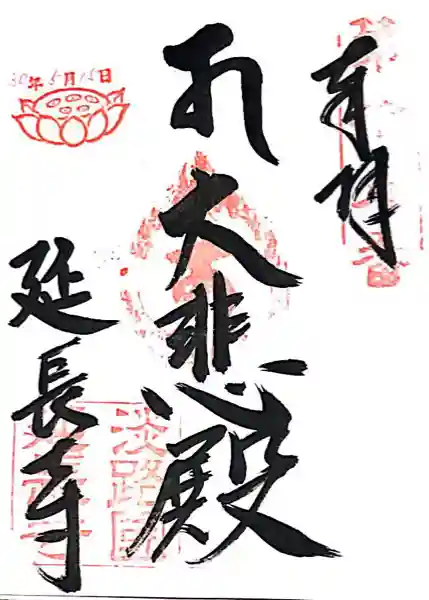 奉拝
大悲殿
30年5月15日
延長寺
淡路国